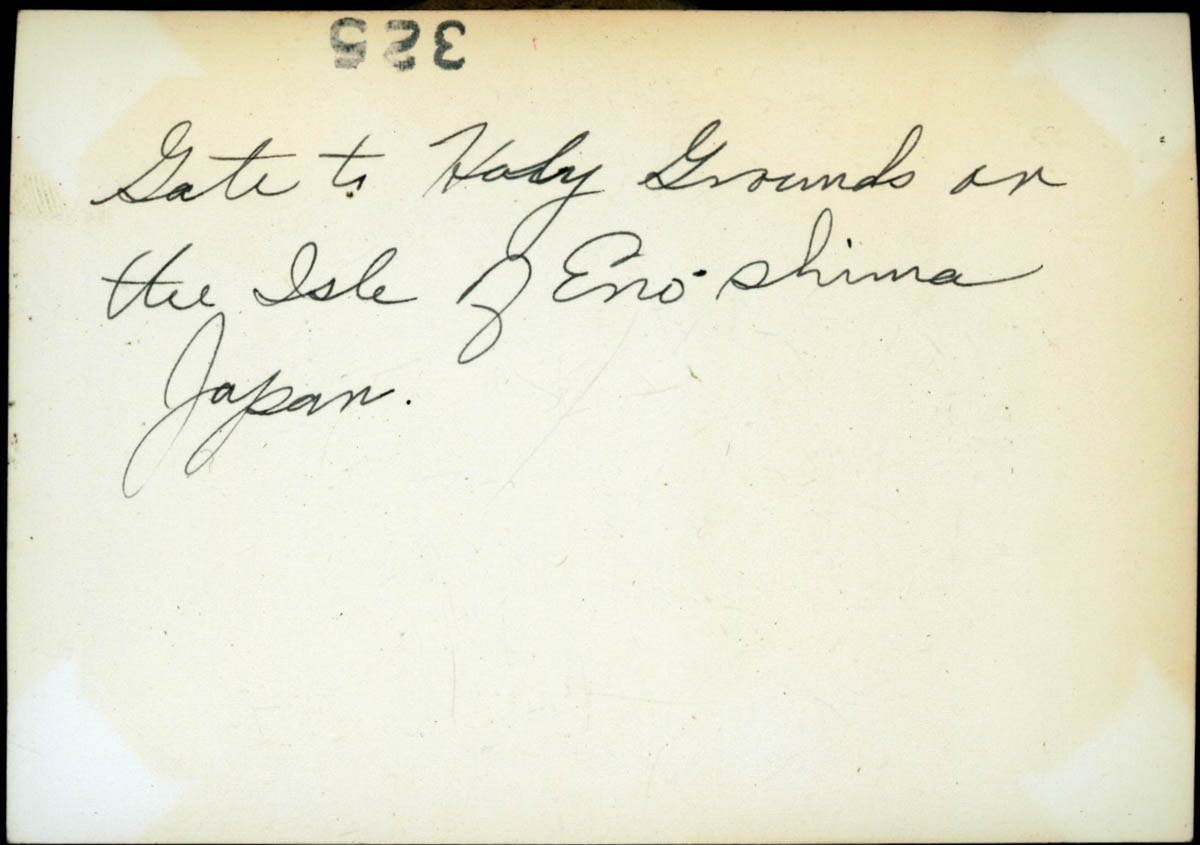 325
Gate to Holy Grounds on
the Isle of Eno-shima
Japan.